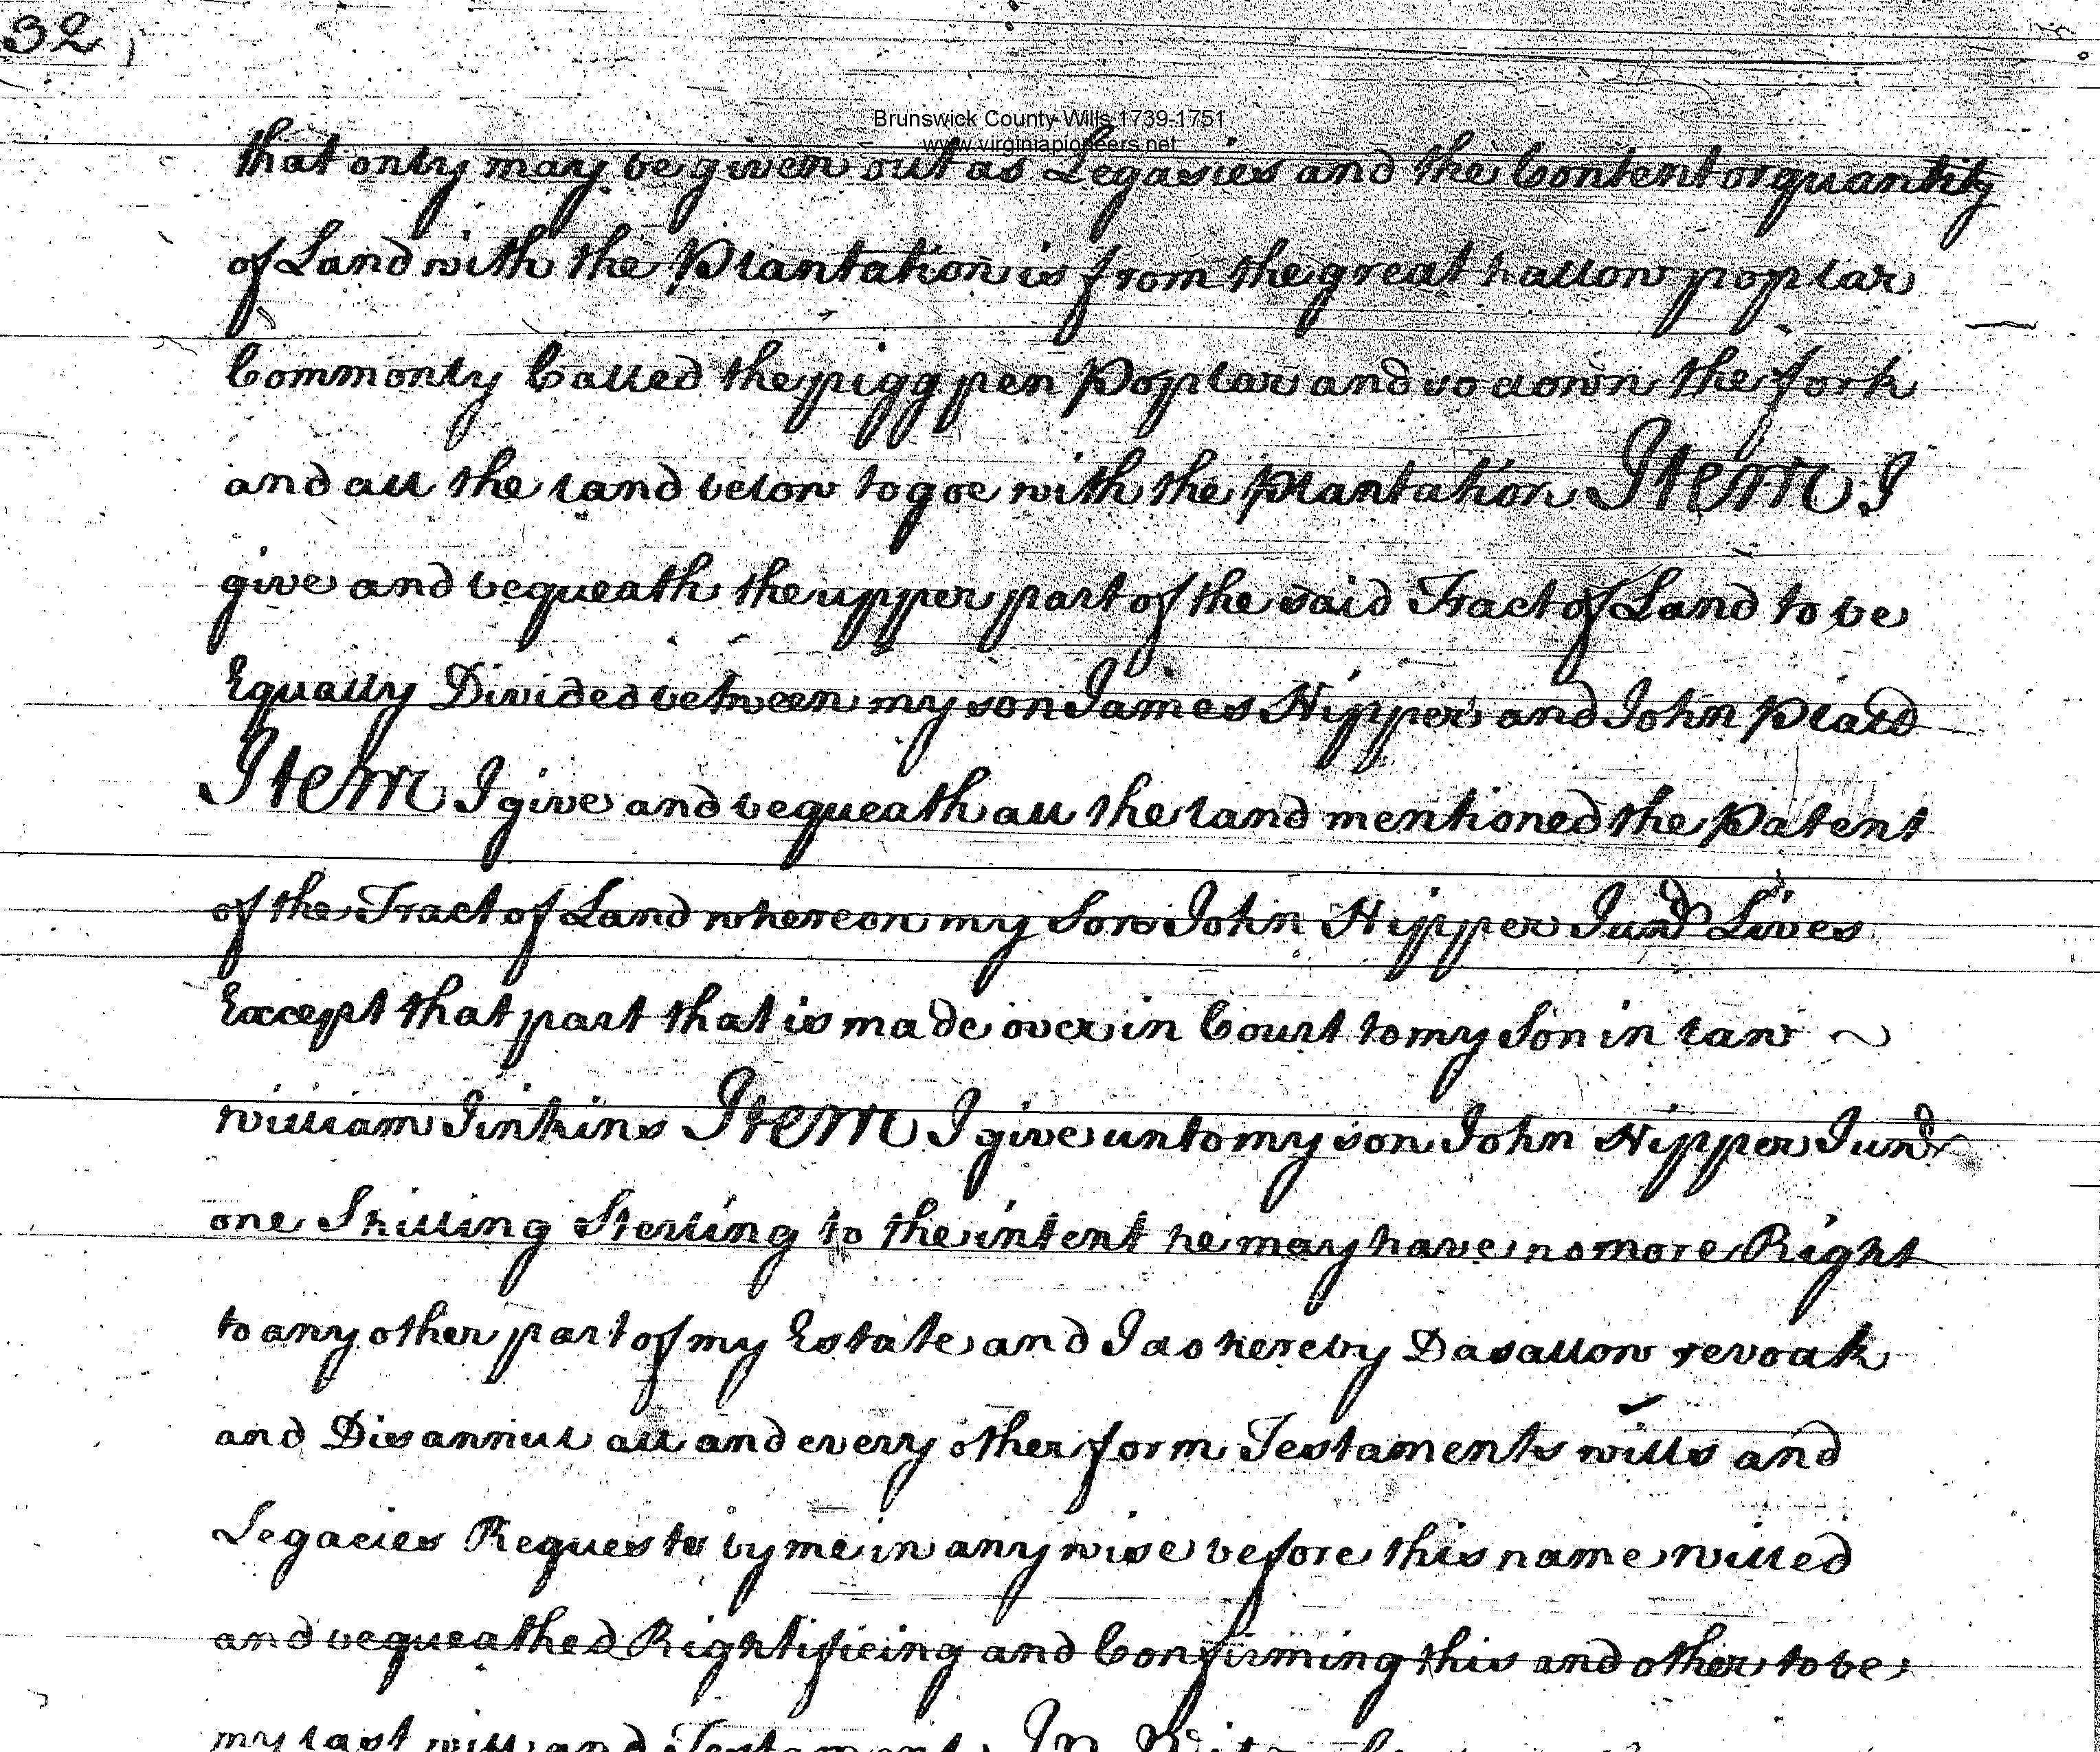 32
Brunswick County Wills 1739-1751
www.virginiapioneers.net
that only may be given out as Legasies and the Content or quantity
of Land with the Plantation is from the great hallow poplar
Commonly Called the pigg pen Poplar and so down the fork
and all the land below to goe with the Plantation Item I
give and bequeath the upper part of the said Tract of Land to be
Equally Divided between my son James Nipper and John
Item I give and bequeath all the land mentioned the Patent
of the Tract of Land whereon my Son John Nipper Junr Lives
Except that part that is made over in Court to my Son in law ~
William Jinkins Item I give unto my son John Nipper Junr
one Shilling Sterling to the intent he may have no more Right
to any other part of my Estate and I do hereby Dasallow revoak
and Disannul all and every other form Testaments wills and
Legacies Requests by me in any wise before this name Willed
and bequeathed Rightificing and Confirming this and other to be
my last will and Testament In